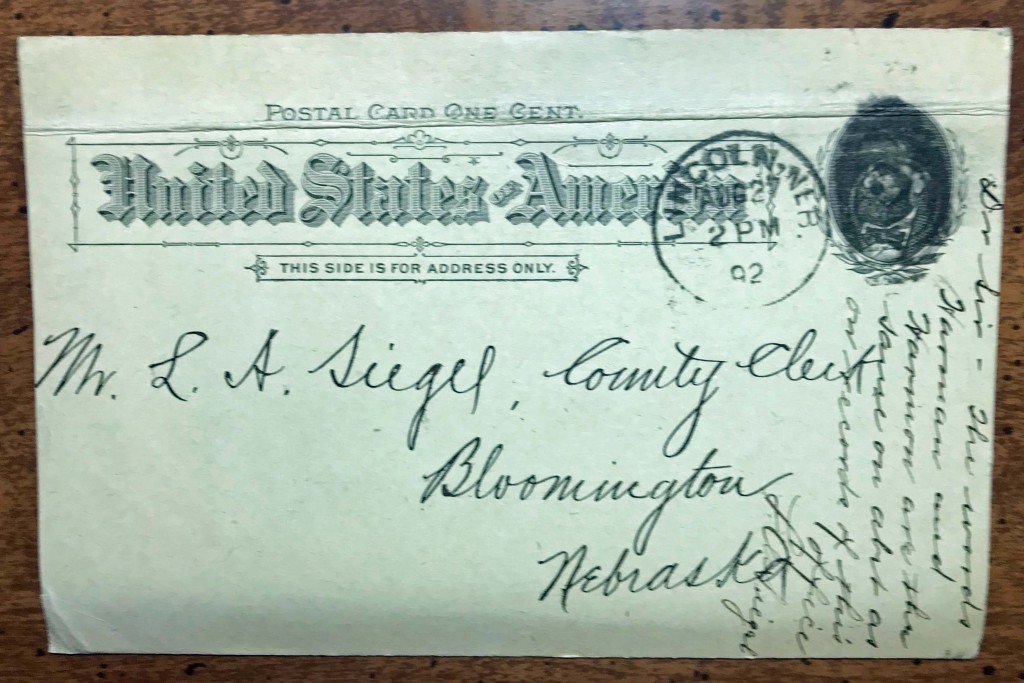 POSTAL CARD ONE CENT.
United States of America
THIS SIDE IS FOR ADDRESS ONLY.
LINCOLN, NEB.
AUG 27
2 PM
92
Mr. L. A. Siegel, County Clerk
Bloomington
Nebraska
Dr Sir - The words
Harman and
Harmon are the
same on abst as
on records of this
office
L A Siegel